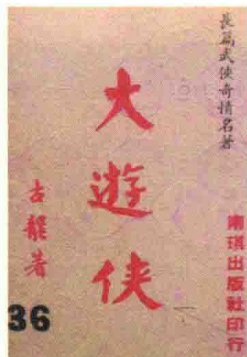 長篇武俠奇情名著
大遊俠
古龍著
南琪出版社印行
36